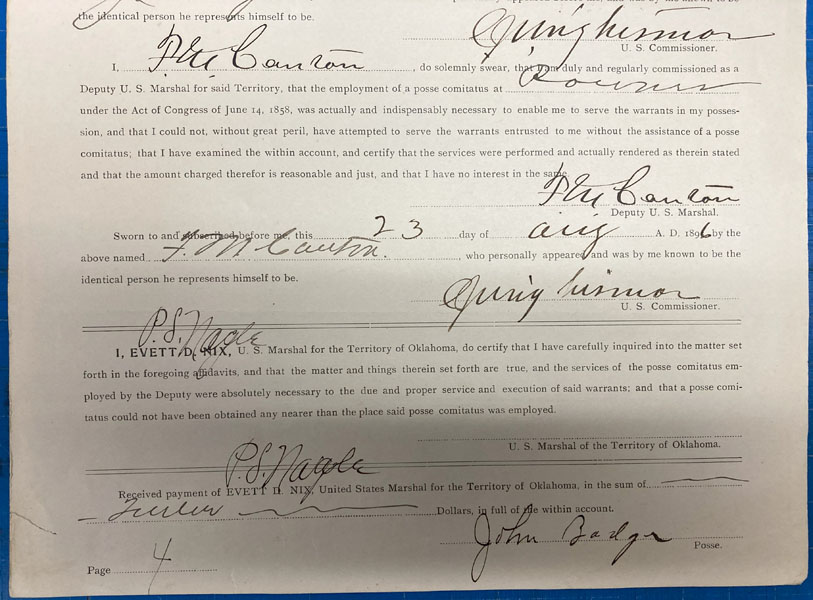 the identical person he represents himself to be.
U. S. Commissioner.
I, F M Canton, do solemnly swear, that I am duly and regularly commissioned as a
Deputy U. S. Marshal for said Territory, that the employment of a posse comitatus at
under the Act of Congress of June 14, 1858, was actually and indispensably necessary to enable me to serve the warrants in my posses-
sion, and that I could not, without great peril, have attempted to serve the warrants entrusted to me without the assistance of a posse
comitatus; that I have examined the within account, and certify that the services were performed and actually rendered as therein stated
and that the amount charged therefor is reasonable and just, and that I have no interest in the same.
F M Canton
Deputy U. S. Marshal.
Sworn to and subscribed before me, this 23 day of Aug A. D. 1896 by the
above named F. M. Canton. , who personally appeared and was by me known to be the
identical person he represents himself to be.
U. S. Commissioner.
P. S. Nagle
I, EVETT D. NIX, U. S. Marshal for the Territory of Oklahoma, do certify that I have carefully inquired into the matter set
forth in the foregoing affidavits, and that the matter and things therein set forth are true, and the services of the posse comitatus em-
ployed by the Deputy were absolutely necessary to the due and proper service and execution of said warrants; and that a posse comi-
tatus could not have been obtained any nearer than the place said posse comitatus was employed.
U. S. Marshal of the Territory of Oklahoma.
P. S. Nagle
Received payment of EVETT D. NIX, United States Marshal for the Territory of Oklahoma, in the sum of
Dollars, in full of the within account.
John Badger
Posse.
Page 4